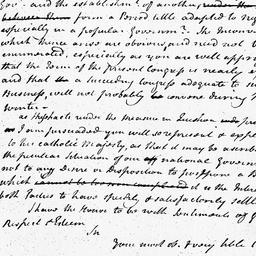 Govt. and the establishmt. of another under the
between them form a Bried little adapted to
especially in a popular Governmt. The Inconv
which thence arise are obvious, and need not b
enumerated; especially as you are well appri
that the Term of the present Congress is nearly
and that a succeeding Congress adequate to
Business, will not probably be convene during
winter.
as respects under the measure in Question
I am persuaded you will so represent & exp
to his catholic Majesty, as that it may be ascrib
the peculiar Situation of our national Governm
not to any Desire or Disposition to postpone a B
which it is the Interest
both Parties to have speedily & satisfactorily settl
I have the Honor to be with Sentiments of
Respect & Esteem
Sir
your most ob. & very hble